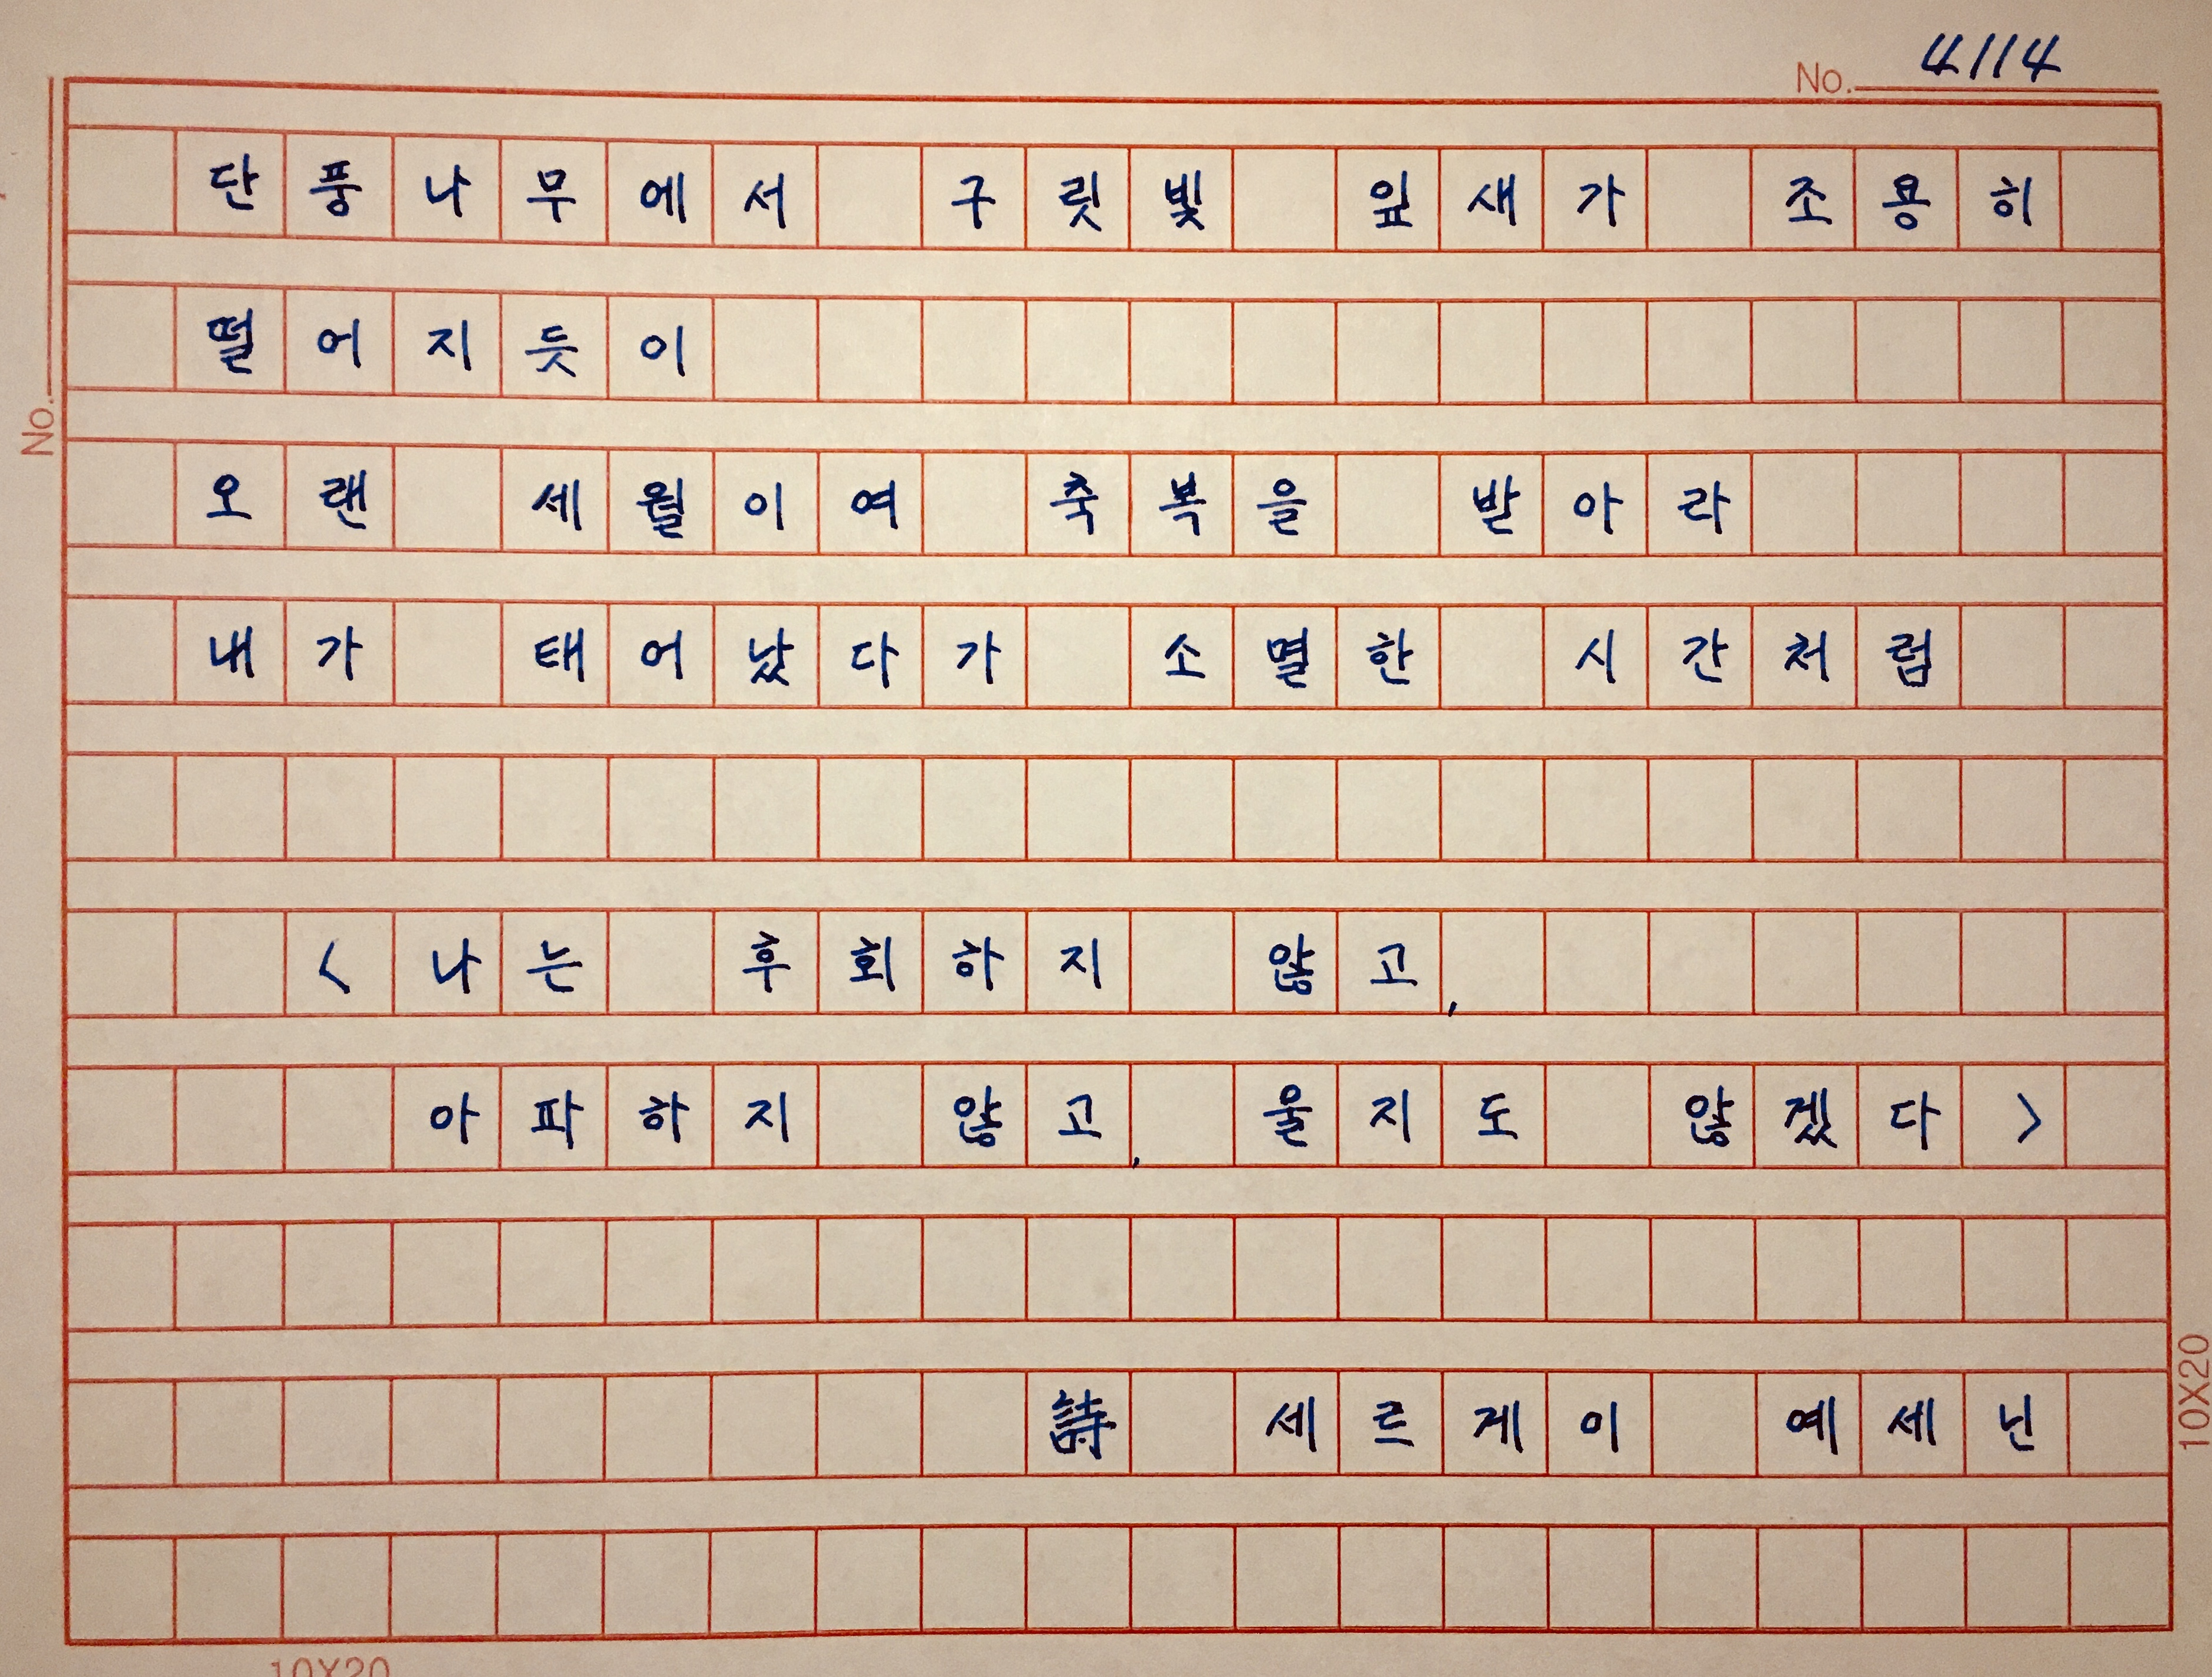 No. 4114
단풍나무에서 구릿빛 잎새가 조용히
떨어지듯이
오랜 세월이여 축복을 받아라
내가 태어났다가 소멸한 시간처럼
<나는 후회하지 않고,
아파하지 않고, 울지도 않겠다>
詩 세르게이 예세닌
No.
10X20
10X20